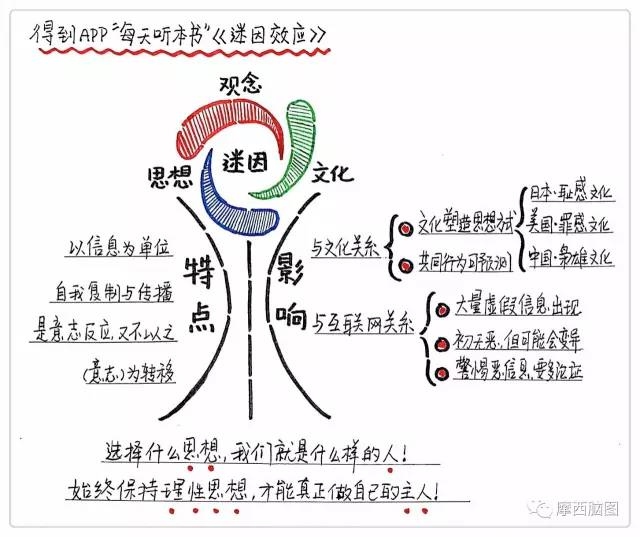 得到APP“每天听本书”《迷因效应》
观念
思想
迷因
文化
特点
以信息为单位
自我复制与传播
是意志反应,又不以之
(意志)为转移
影响
与文化关系
文化塑造思想方式
日本·耻感文化
美国·罪感文化
中国·枭雄文化
共同行为可预测
与互联网关系
大量虚假信息出现
初无恶,但可能会变异
警惕恶信息,要多论证
选择什么思想,我们就是什么样的人!
始终保持理性思想,才能真正做自己的主人!
摩西脑图